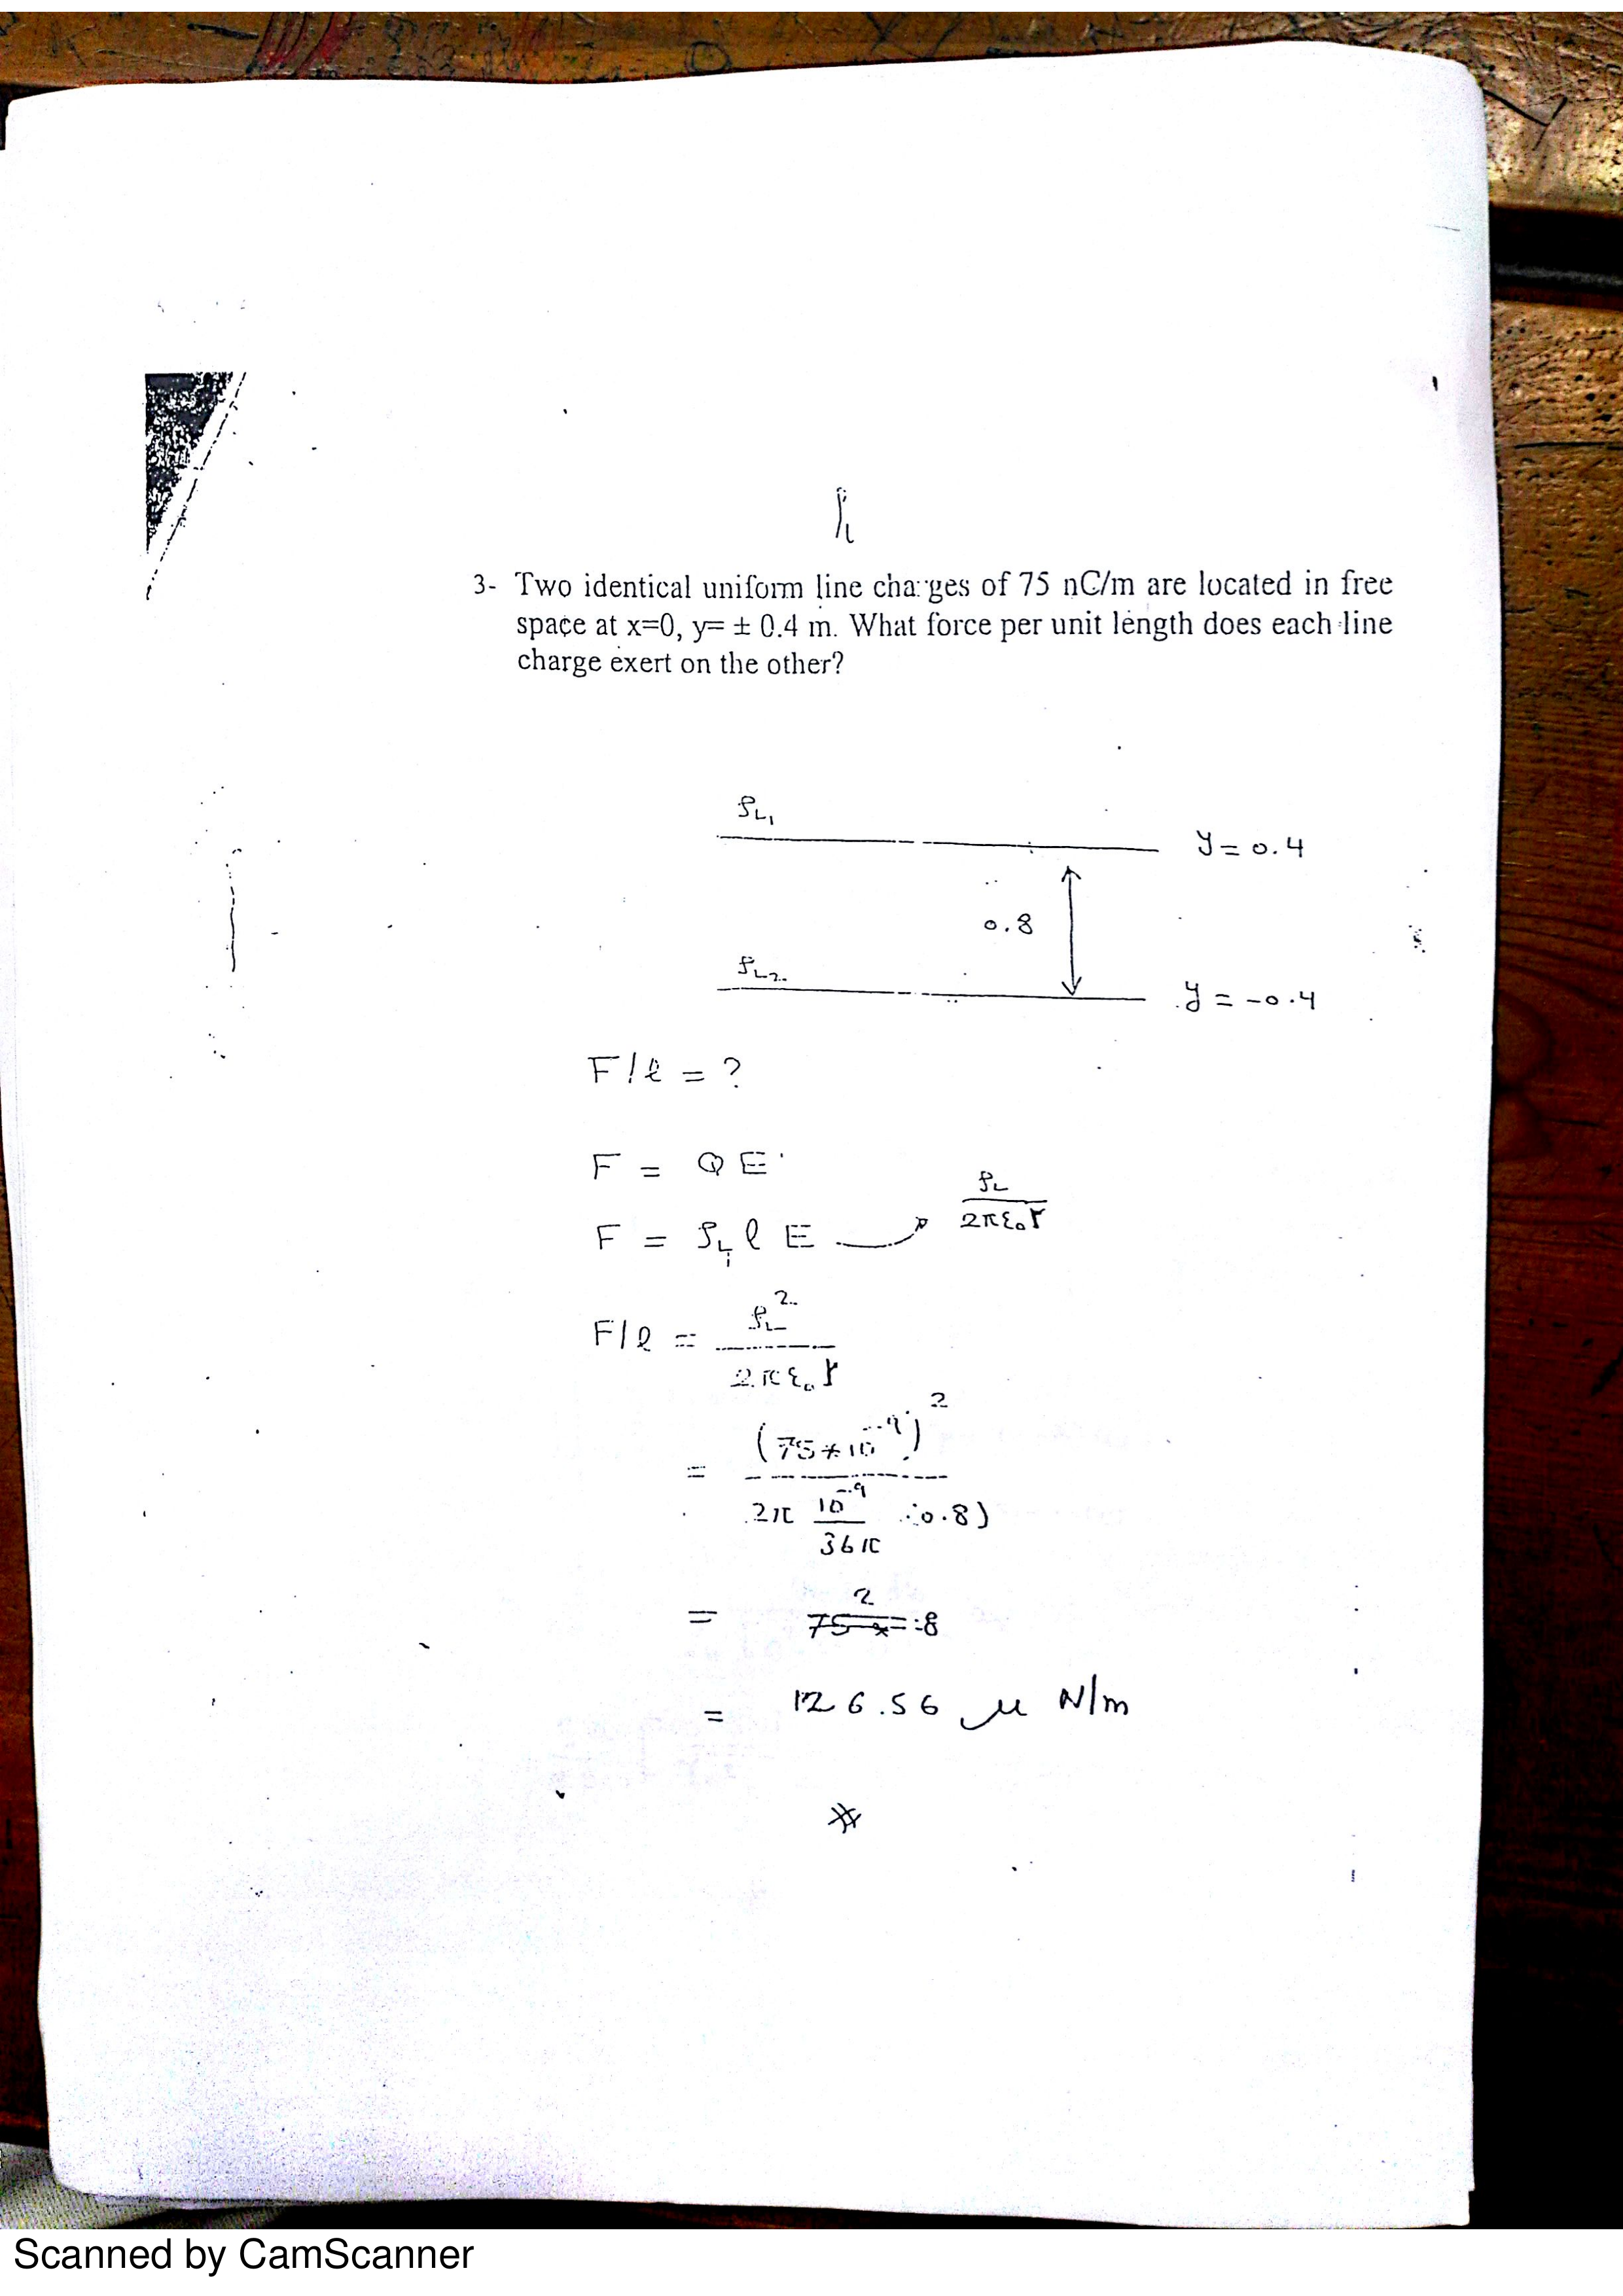 ρL
3- Two identical uniform line charges of 75 nC/m are located in free
space at x=0, y= ± 0.4 m. What force per unit length does each line
charge exert on the other?
ρL1
y = 0.4
0.8
ρL2
y = -0.4
F/ℓ = ?
F = QE
F = ρL1 ℓ E → ρL / 2πε₀r
F/ℓ = ρL² / 2πε₀r
= (75*10⁻⁹)² / 2π 10⁻⁹/36π (0.8)
=
= 126.56 μ N/m
Scanned by CamScanner